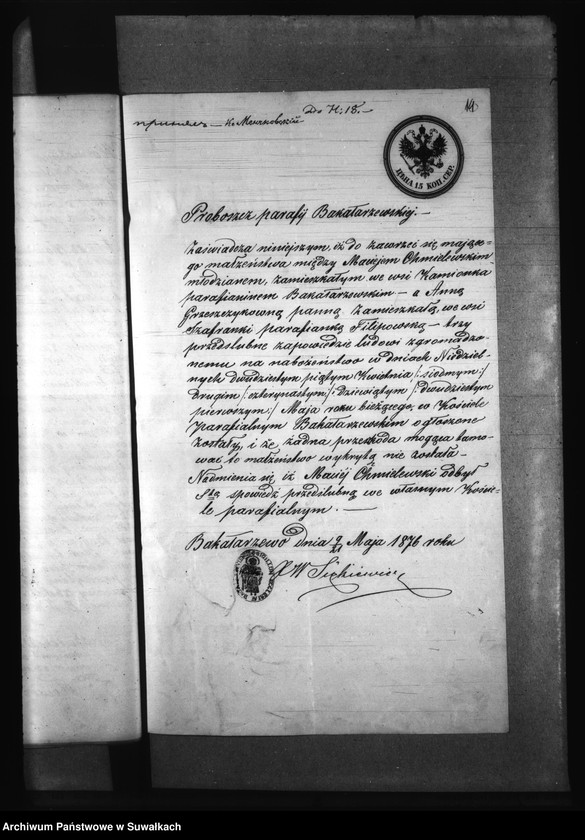 До Н: 18.
19
принялъ — Кс Мачаковскій
ЦѢНА 15 КОП. СЕР.
Proboszcz parafij Bakałarzewskiej. —
Zaświadcza niniejszym, iż do zawrzeć się mające-
go małżeństwa między Maciejem Chmielewskim
młodzianem, zamieszkałym we wsi Kamionka
parafianinem Bakałarzewskim — a Anną
Grzeszczykowną panną zamieszkałą we wsi
Szafranki parafianką Filipowską — trzy
przedślubne zapowiedzie ludowi zgromadzo-
nemu na nabożeństwo w dniach Niedziel-
nych dwudziestym piątym Kwietnia /:siódmym:/
drugim /:czternastym:/ dziewiątym /:dwudziestym
pierwszym:/ Maja roku bieżącego, w Kościele
Parafialnym Bakałarzewskim ogłoszone
zostały, i że żadna przeszkoda mogąca tamo-
wać to małżeństwo wykrytą nie została —
Nadmienia się iż Maciej Chmielewski odbył
Stą spowiedź przedślubną we własnym Koście-
le parafialnym. —
Bakałarzewo dnia 9/21 Maja 1876 roku
X W Sickiewicz
Archiwum Państwowe w Suwałkach